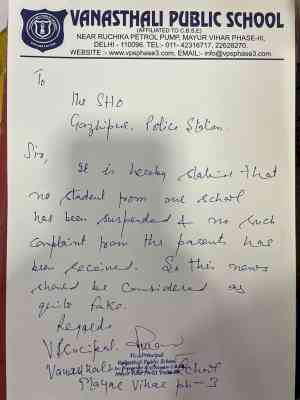 VANASTHALI PUBLIC SCHOOL
(AFFILIATED TO C.B.S.E)
NEAR RUCHIKA PETROL PUMP, MAYUR VIHAR PHASE-III,
DELHI - 110096. TEL:- 011- 42316717, 22626270.
WEBSITE :- www.vpsphase3.com, EMAIL:- info@vpsphase3.com
To
The SHO
Gazhipur, Police Station.
Sir,
It is hereby stating that
no student from our school
has been suspended & no such
complaint from the parents has
been received. So this news
should be considered as
quite fake.
Regards
V Principal
Vice Principal
Vanasthali Public School
Vanasthali School
Mayur Vihar ph-3